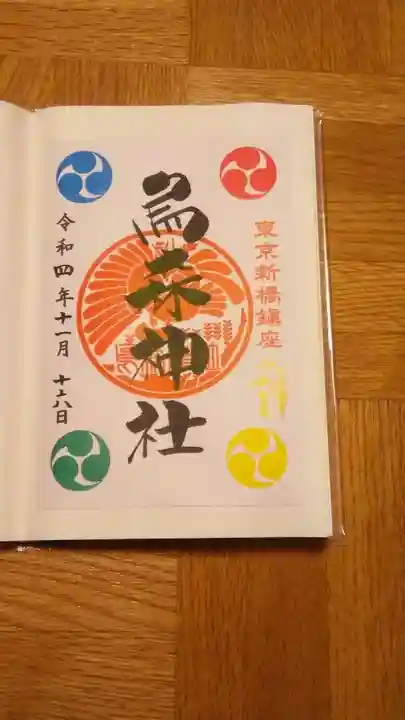 東京新橋鎮座
烏森神社
令和四年十一月十六日